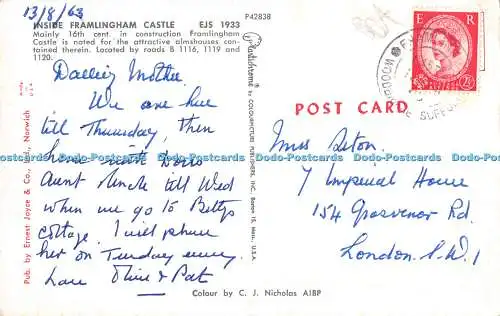 13/8/63
INSIDE FRAMLINGHAM CASTLE EJS 1933
Mainly 16th cent. in construction Framlingham
Castle is noted for the attractive almshouses con-
tained therein. Located by roads B 1116, 1119 and
1120.
P42838
Darling Mother
We are here
till Thursday, then
home with
Aunt & Uncle till Wed
when we go to Bettys
cottage. I will phone
her on Tuesday
Love Olive & Pat
Colour by C. J. Nicholas AIBP
Pub. by Ernest Joyce & Co., Ltd., Norwich
Made in U.S.A.
Plastichrome ® by COLOURPICTURE PUBLISHERS, INC. Boston 15, Mass. U.S.A.
POST CARD
E R
2½D
WOODBRIDGE SUFFOLK
Mrs Seton
7 Imperial House
154 Grosvenor Rd.
London. S.W.1
Postcards-Download.com Postcards-Download.com Postcards-Download.com